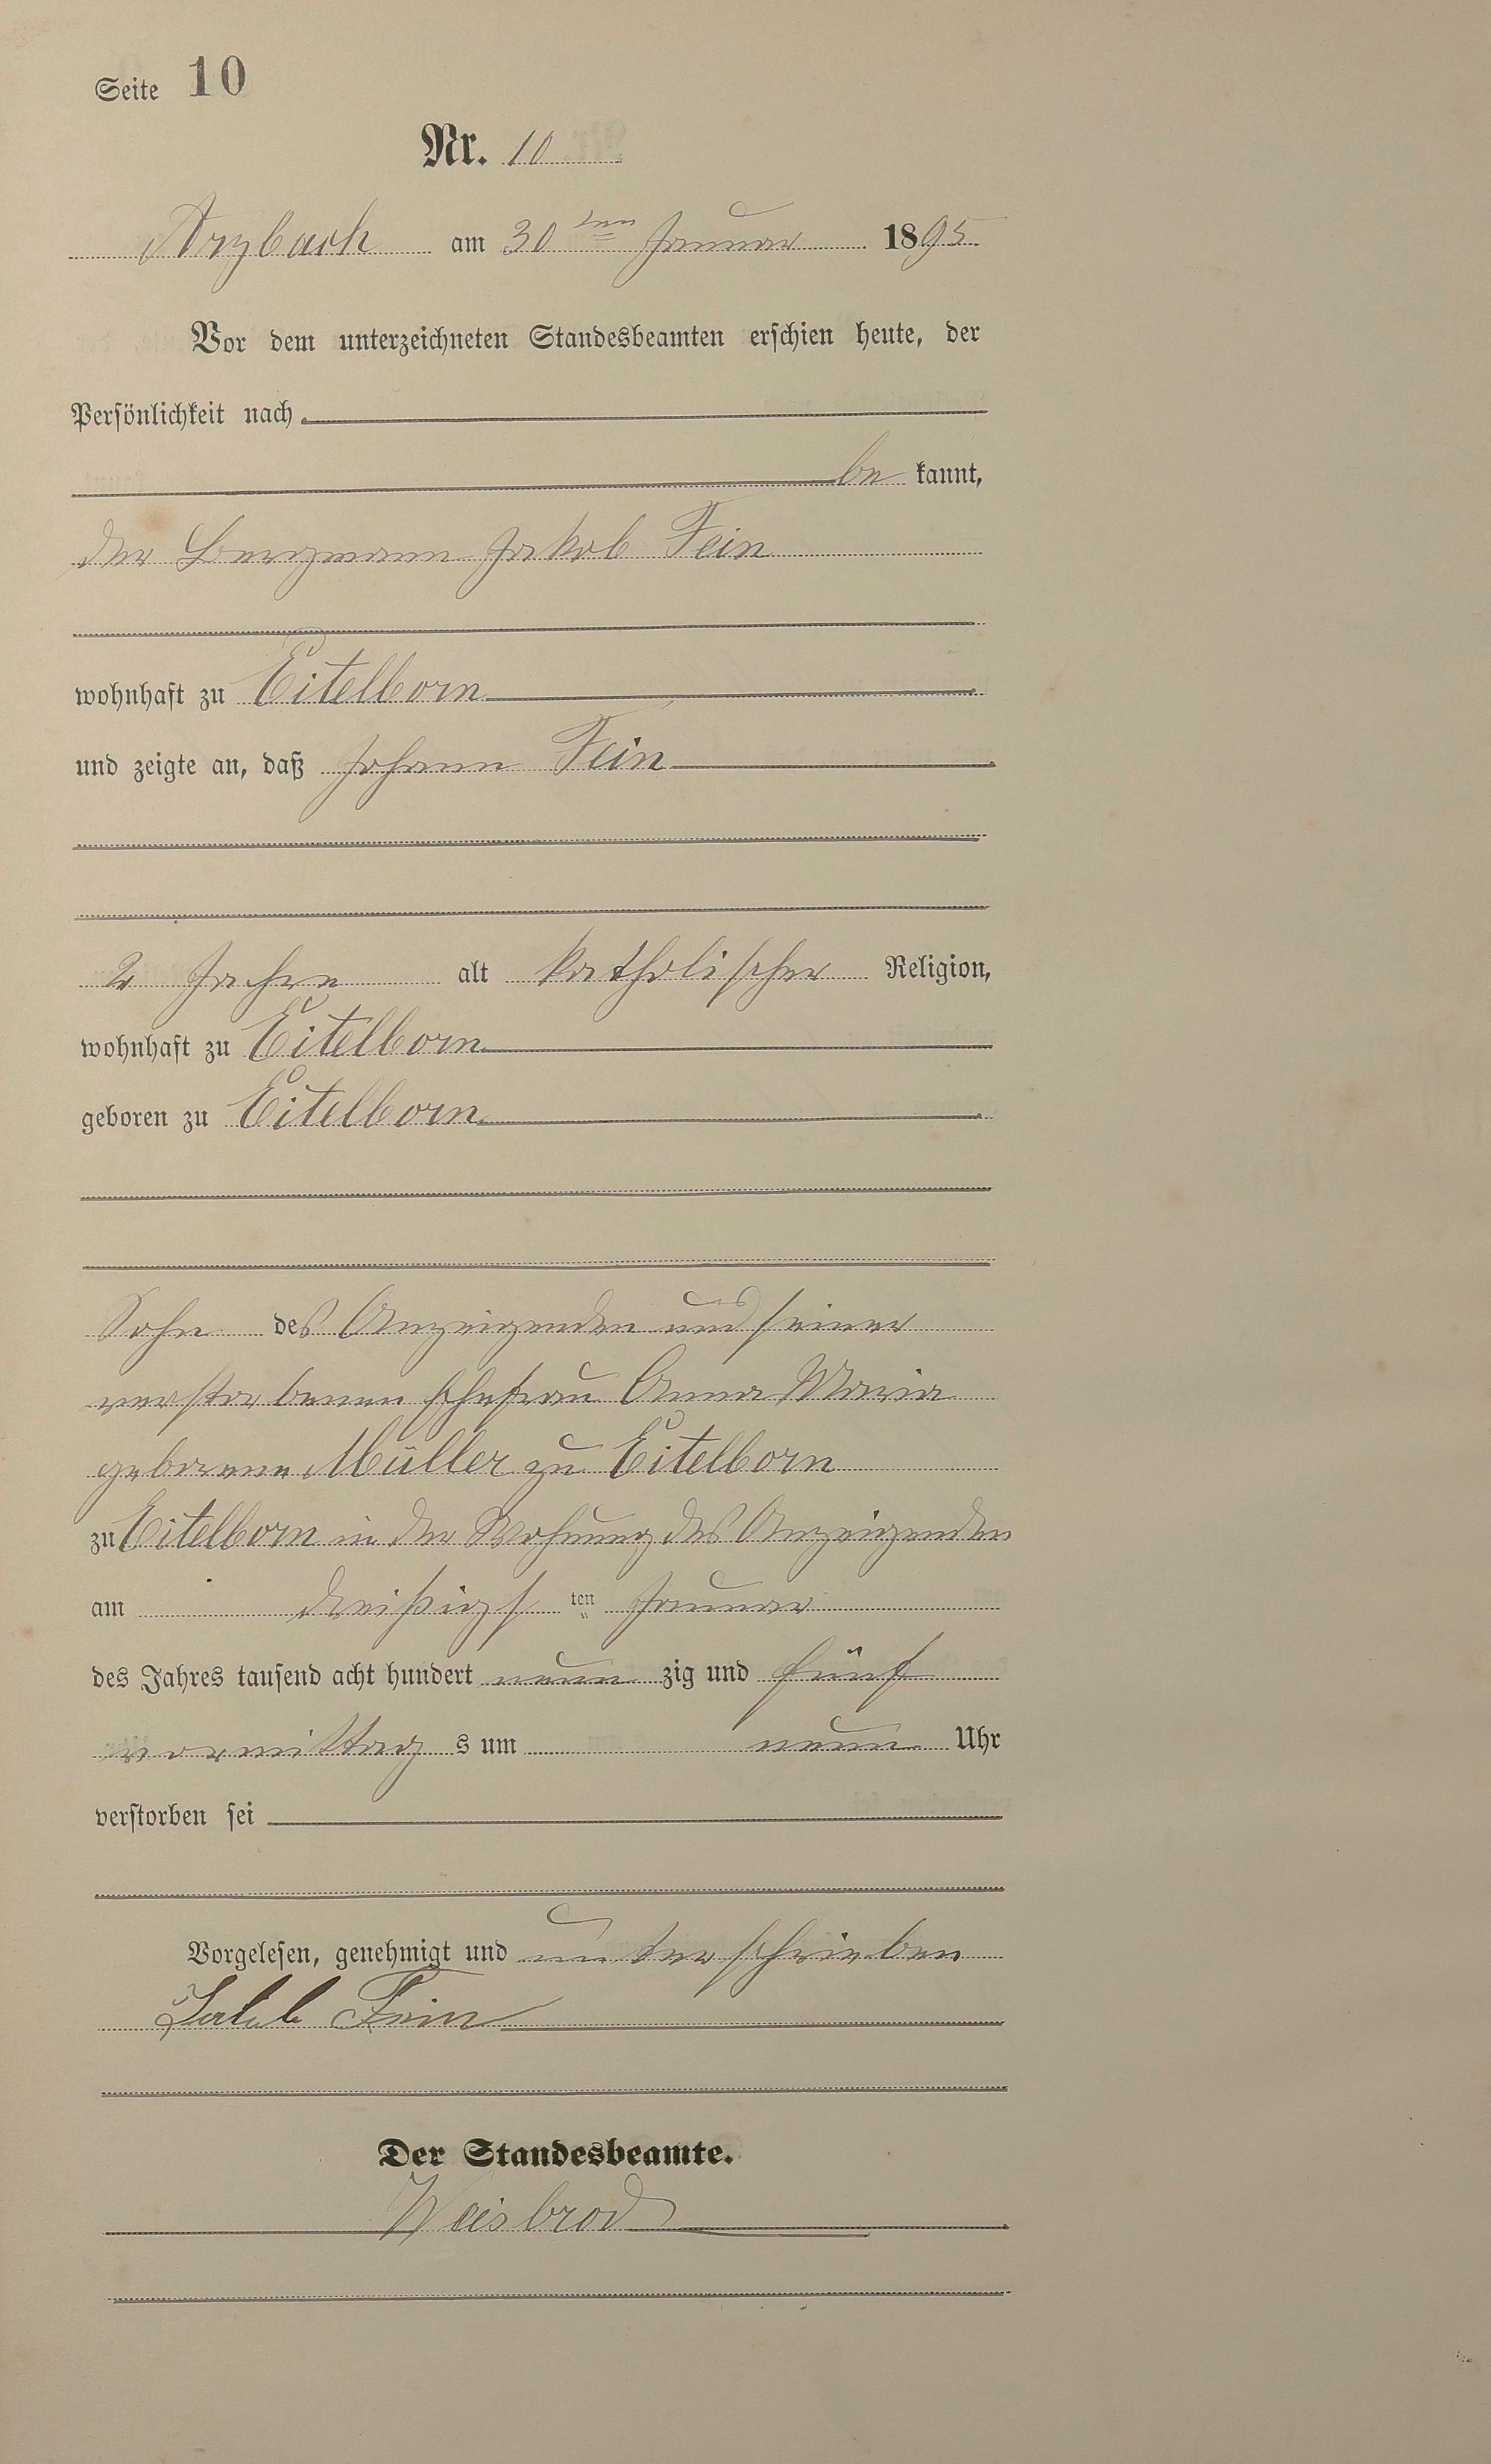 Seite 10
Nr. 10
Arzbach am 30 ten Januar 1895
Vor dem unterzeichneten Standesbeamten erschien heute, der
Persönlichkeit nach
be kannt,
der Bergmann Jakob Fein
wohnhaft zu Eitelborn
und zeigte an, daß Johann Fein
2 Jahre alt katholischer Religion,
wohnhaft zu Eitelborn
geboren zu Eitelborn
Sohn des Anzeigenden und seiner
verstorbenen Ehefrau Anna Maria
geborene Müller zu Eitelborn
zu Eitelborn in der Wohnung des Anzeigenden
am dreißigs ten Januar
des Jahres tausend acht hundert neun zig und fünf
vormittag s um neun Uhr
verstorben sei
Vorgelesen, genehmigt und unterschrieben
Jakob Fein
Der Standesbeamte.
Weisbrod